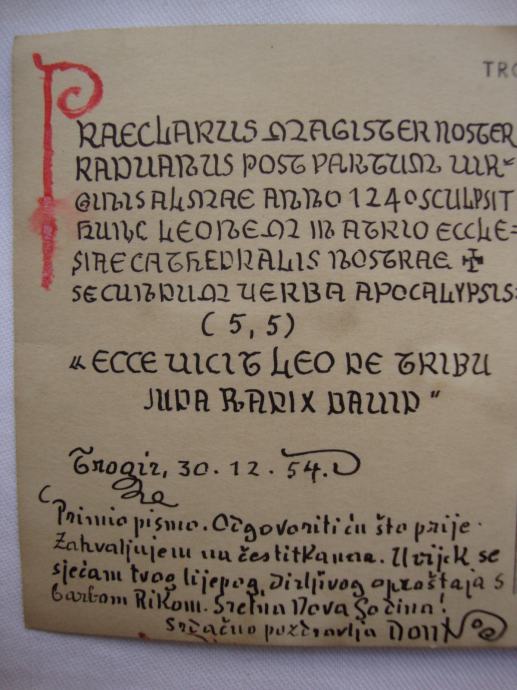 TRO
PRAECLARUS MAGISTER NOSTER
RADUANUS POST PARTUM UIR-
GINIS ALMAE ANNO 1240 SCULPSIT
HUNC LEONEM IN ATRIO ECCLE=
SIAE CATHEDRALIS NOSTRAE ✠
SECUNDUM UERBA APOCALYPSIS:
(5,5)
« ECCE UICIT LEO DE TRIBU
JUDA RADIX DAUID "
Trogir, 30.12.54.
Primio pismo. Odgovoriti ću što prije.
Zahvaljujem na čestitkama. Uvijek se
sjećam tvog lijepog, dirljivog oproštaja s
barbom Rikom. Sretna Nova Godina!
Srdačno pozdravlja Don